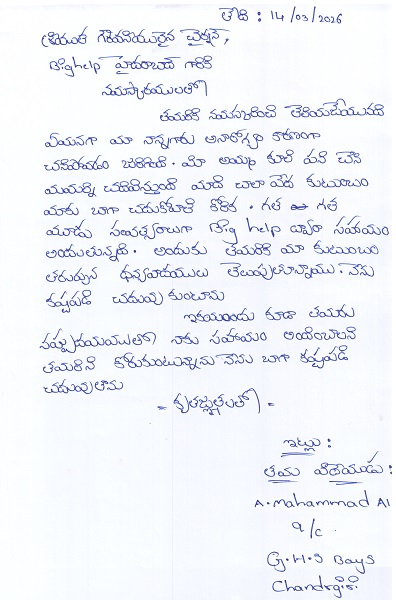 తేది : 14/03/2026
శ్రీయుత గౌరవనీయులైన చైర్మన్,
Bighelp హైదరాబాద్ గారికి
నమస్కారములతో
తమరికి నమస్కరించి తెలియచేయునది
ఏమనగా మా నాన్నగారు అనారోగ్యం కారణంగా
చనిపోవడం జరిగింది. మా అమ్మ కూలి పని చేసి
మమల్ని చదివిస్తుంది మాది చాలా పేద కుటుంబం
మాకు బాగా చదుకోవాలి కోరిక. గత గత
మూడు సంవత్సరాలుగా Big help ద్వారా సహాయం
అందుతున్నది. అందుకు తమరికి మా కుటుంబం
తరుపున ధన్యవాదములు తెలుపుతున్నాము. నేను
కష్టపడి చదువు కుంటాను
ఇకముందు కూడా తమరు
నాకు సహాయం అందించాలని
తమరిని కోరుకుంటున్నాను నేను బాగా కష్టపడి
చదువుతాను
= కృతజ్ఞతలతో =
ఇట్లు :
తమ విదేయుడు :
A. Mahammad Ali
9/c
G.H.S Bays
Chandrgiri.